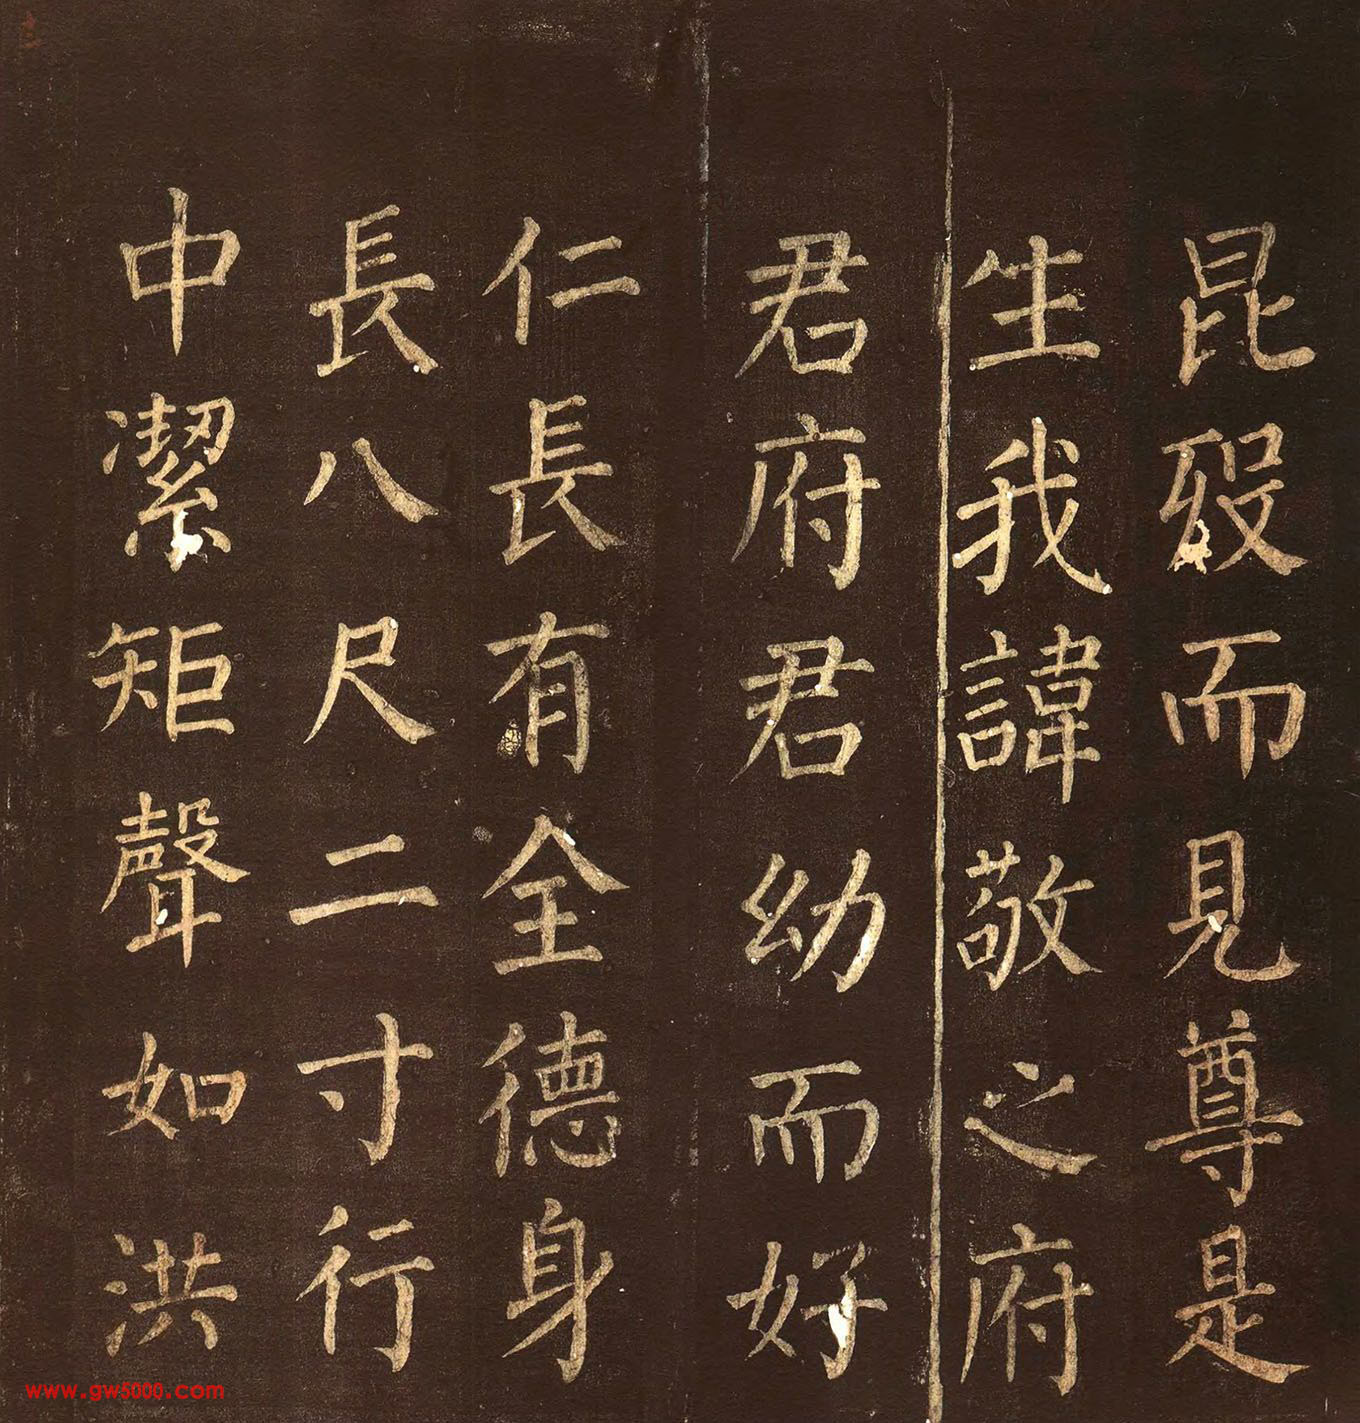 昆歿而見尊是
生我諱敬之府
君府君幼而好
仁長有全德身
長八尺二寸行
中潔矩聲如洪
www.gw5000.com